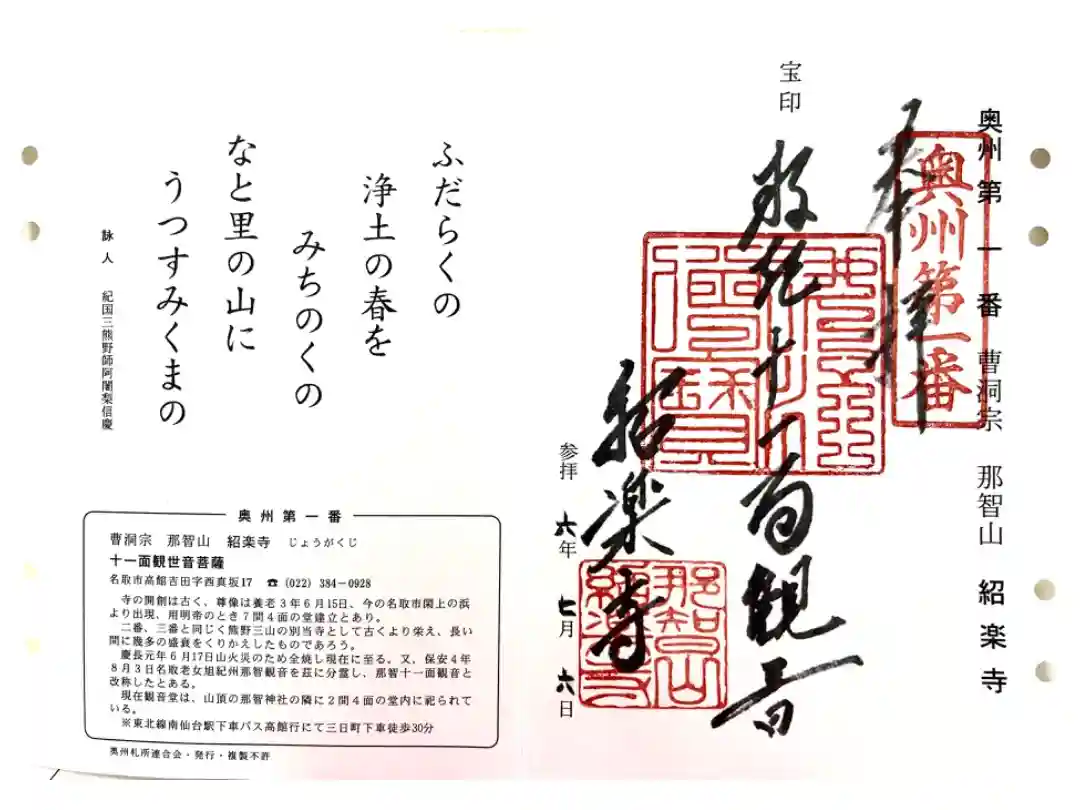 奥州第一番 曹洞宗 那智山 紹楽寺
奥州第一番
奉拝
宝印
十一面観音
紹楽寺
那智山
紹楽寺
参拝 六年 七月 六日
ふだらくの
浄土の春を
みちのくの
なと里の山に
うつすみくまの
詠人 紀国三熊野師阿闍梨信慶
奥州第一番
曹洞宗 那智山 紹楽寺 じょうがくじ
十一面観世音菩薩
名取市高館吉田字西真坂17 ☎(022)384-0928
寺の開創は古く、尊像は養老3年6月15日、今の名取市閖上の浜
より出現、用明帝のとき7間4面の堂建立とあり。
二番、三番と同じく熊野三山の別当寺として古くより栄え、長い
間に幾多の盛衰をくりかえしたものであろう。
慶長元年6月17日山火災のため全焼し現在に至る。又、保安4年
8月3日名取老女旭紀州那智観音を茲に分霊し、那智十一面観音と
改称したとある。
現在観音堂は、山頂の那智神社の隣に2間4面の堂内に祀られて
いる。
※東北線南仙台駅下車バス高館行にて三日町下車徒歩30分
奥州札所連合会・発行・複製不許